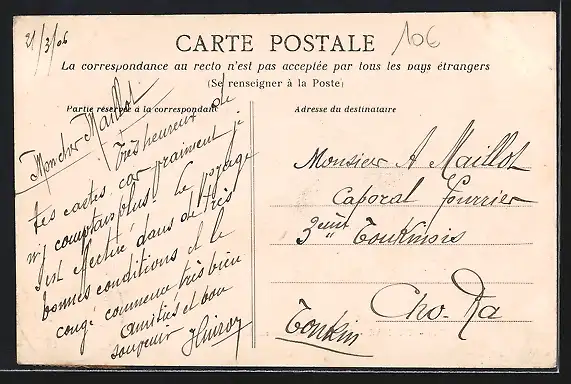 21/3/06
106
CARTE POSTALE
La correspondance au recto n'est pas acceptée par tous les pays étrangers
(Se renseigner à la Poste)
Partie réservée à la correspondance
Adresse du destinataire
Mon cher Maillot
Très heureux de
tes cartes car vraiment je
n'y comptais plus. Le voyage
s'est effectué dans de très
bonnes conditions et le
congé commence très bien
Amitiés et bon
souvenir
Monsieur A Maillot
Caporal fourrier
3eme Tonkinois
Cho-Ra
Tonkin